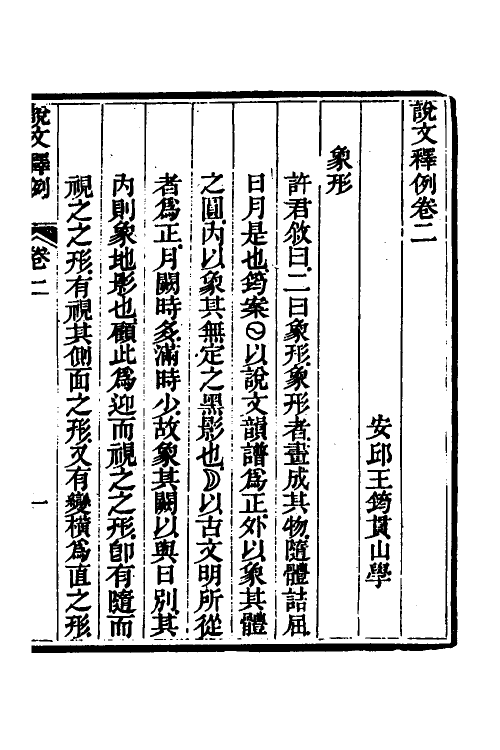 說文釋例卷二
安邱王筠貫山學
象形
許君敘曰二曰象形象形者畫成其物隨體詰屈
日月是也筠案以說文韻譜爲正外以象其體
之圓内以象其無定之黑影也以古文明所從
者爲正月闕時多滿時少故象其闕以與日別其
内則象地影也顧此爲迎而視之之形卽有隨而
視之之形有視其側面之形又有變橫爲直之形
說文釋例 卷二 一